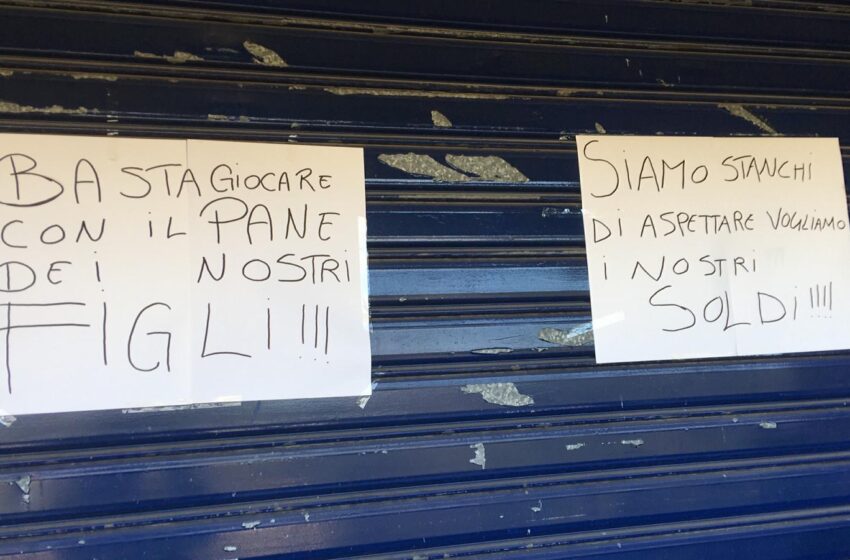 BASTA GIOCARE
CON IL PANE
DEI NOSTRI
FIGLI!!!!
SIAMO STANCHI
DI ASPETTARE VOGLIAMO
I NOSTRI
SOLDI!!!!